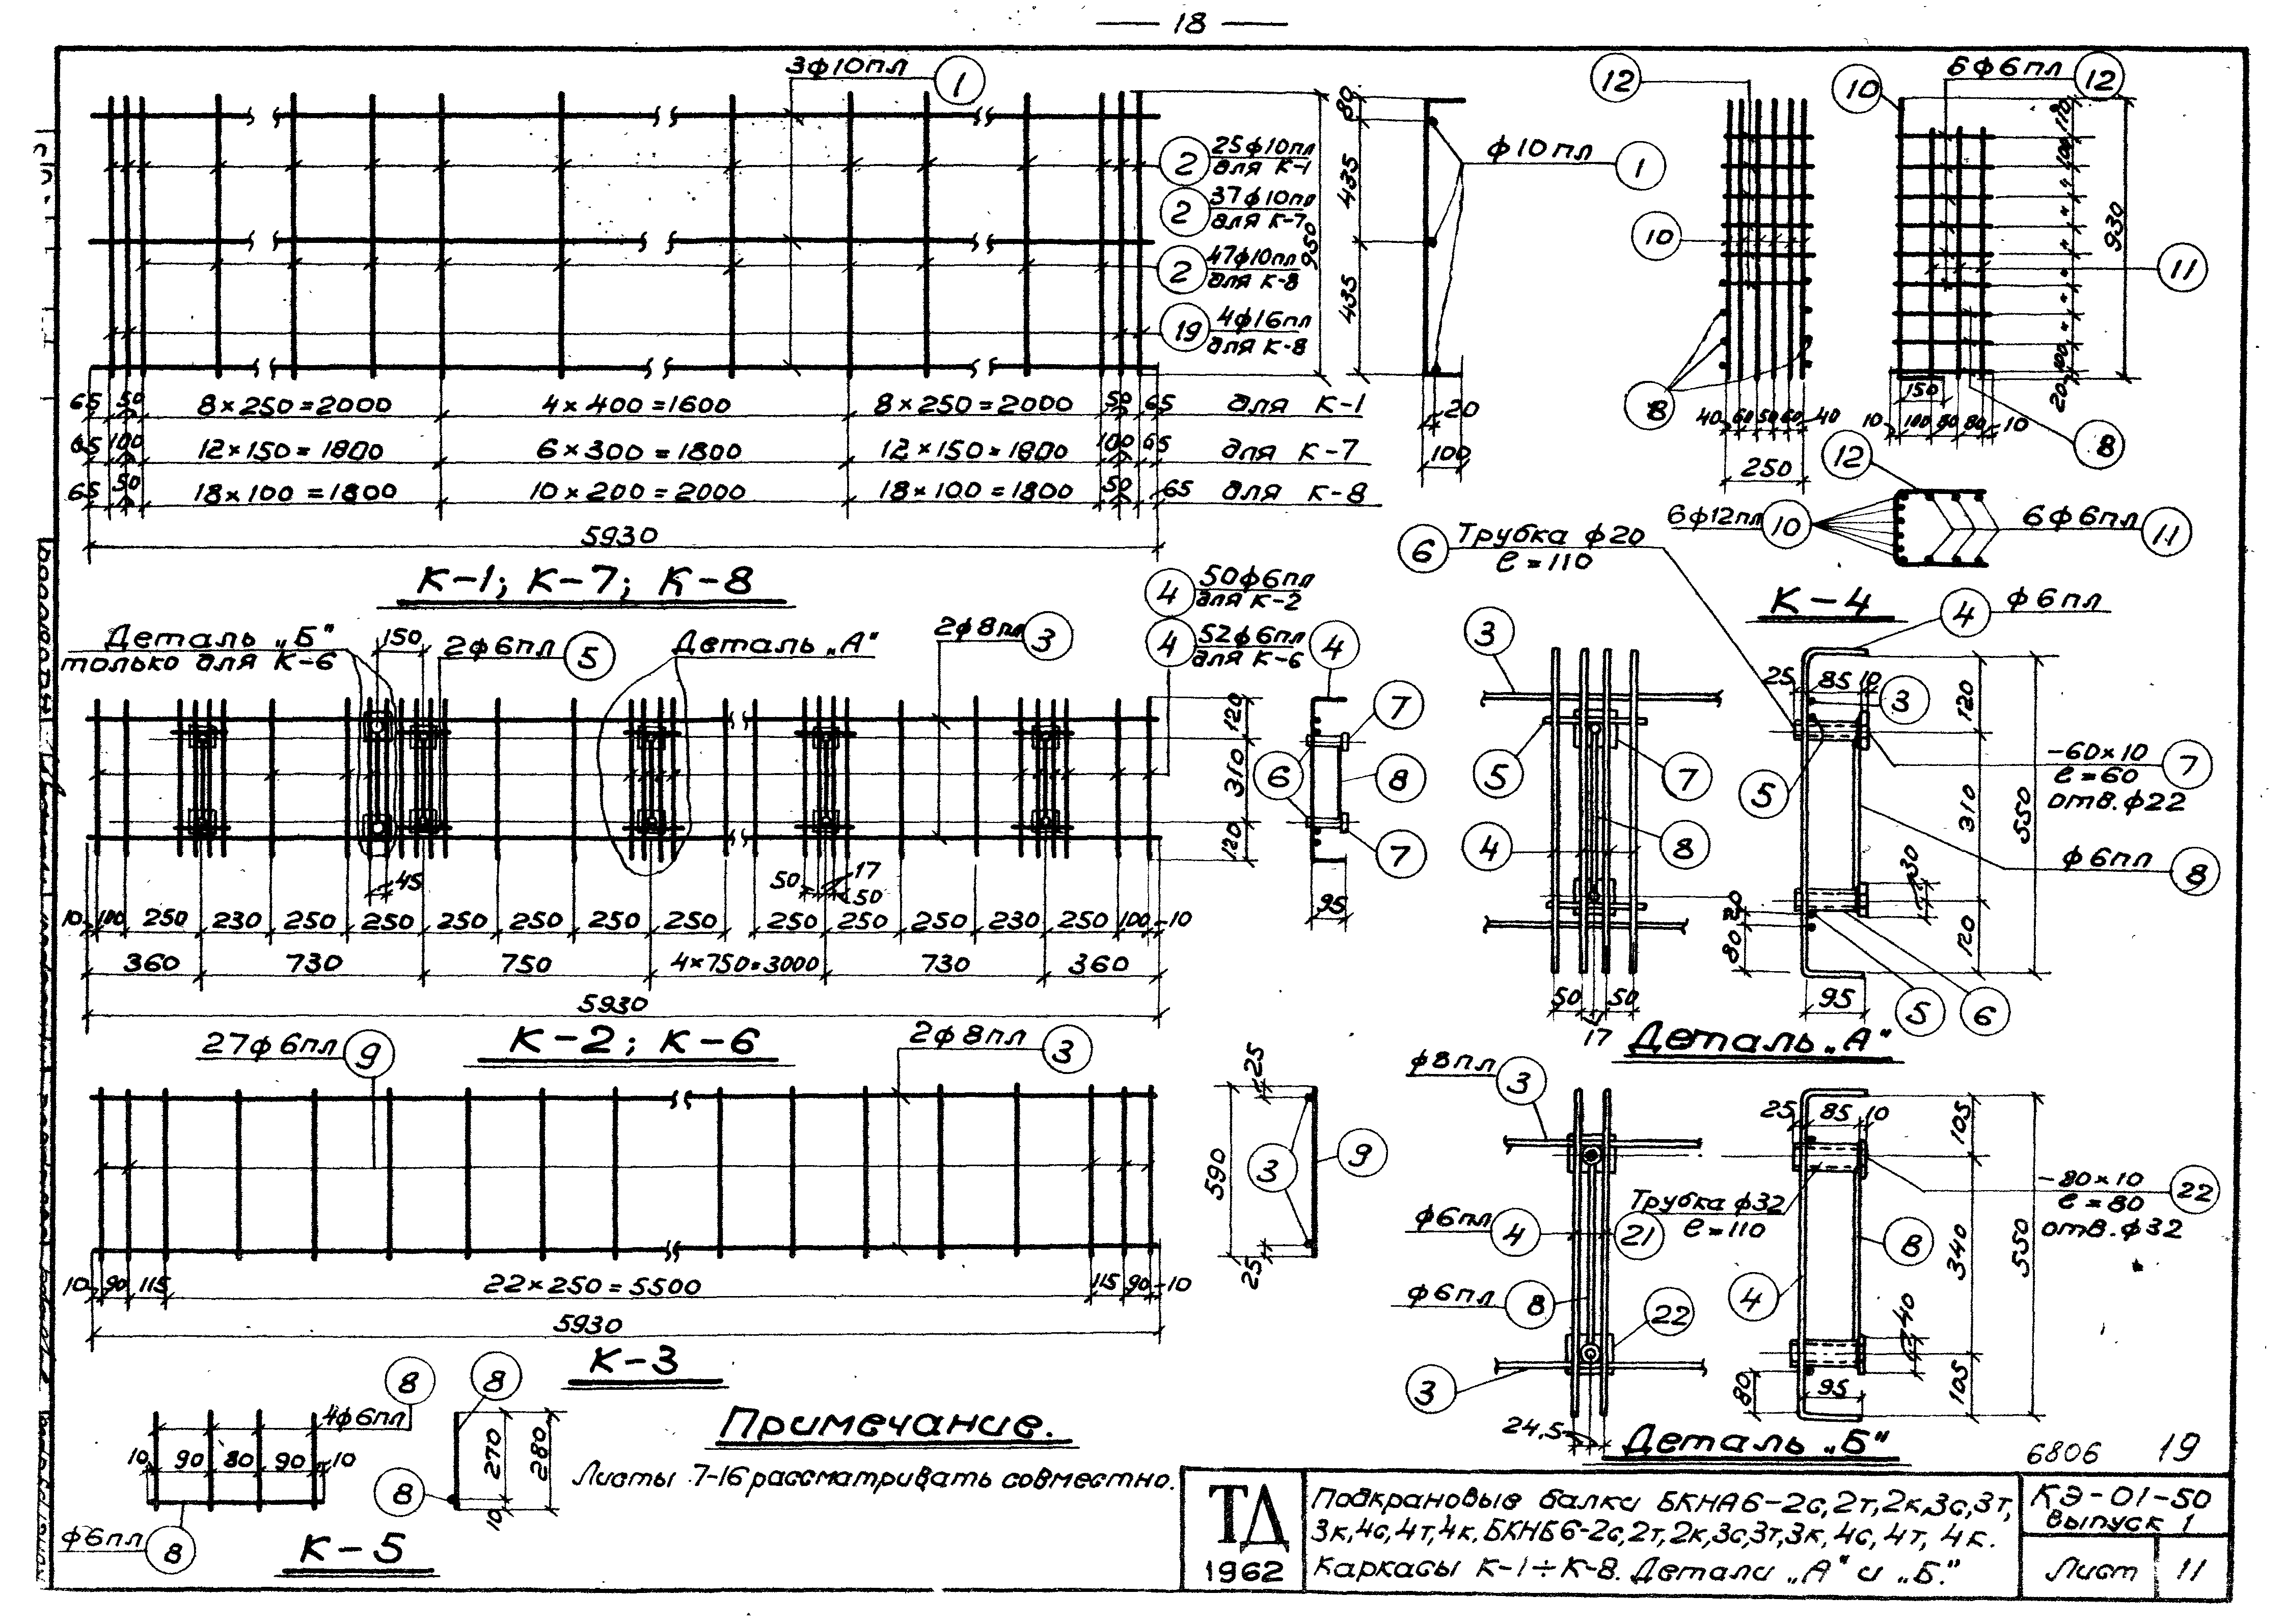 — 18 —
3ф10пл 1
2 25ф10пл
для К-1
2 37ф10пл
для К-7
2 47ф10пл
для К-8
19 4ф16пл
для К-8
950
65 50 8×250=2000 4×400=1600 8×250=2000 50 65 для К-1
65 100 12×150=1800 6×300=1800 12×150=1800 100 65 для К-7
65 50 18×100=1800 10×200=2000 18×100=1800 50 65 для К-8
5930
К-1; К-7; К-8
80
435
435
ф10пл 1
20
100
12
10
8
40 60 50 60 40
250
10
6ф6пл 12
110
100
"
"
"
"
"
"
100
20
930
11
150
10 100 80 80 10
8
12
6ф12пл 10
6ф6пл 11
К-4
Деталь „Б"
только для К-6
150
2ф6пл 5
Деталь „А"
2ф8пл 3
4 50ф6пл
для К-2
4 52ф6пл
для К-6
120
310
120
45
50 17 50
10 100 250 230 250 250 250 250 250 250 250 250 250 230 250 100 10
360 730 750 4×750=3000 730 360
5930
К-2; К-6
4
7
6 8
7
95
6 Трубка ф20
ℓ=110
3
5
7
4
8
50 50
17
4 ф6пл
25 85 10
3
5
120
310
120
550
−60×10
ℓ=60
отв.ф22
7
ф6пл 8
30
20
80
95
5 6
Деталь „А"
27ф6пл 9
2ф8пл 3
10 90 115 22×250=5500 115 90 10
5930
К-3
25
590
25
3
9
ф8пл 3
ф6пл 4
21
ф6пл 8
22
3
24,5
25 85 10
105
340
105
550
Трубка ф32
ℓ=110
−80×10
ℓ=80
отв.ф32
22
8
4
40
80
95
Деталь „Б"
4ф6пл 8
10 90 80 90 10
ф6пл 8
К-5
8
270
280
8
10
Примечание.
Листы 7-16 рассматривать совместно.
6806 19
ТД
1962
Подкрановые балки БКНА6-2с,2т,2к,3с,3т,
3к,4с,4т,4к, БКНБ6-2с,2т,2к,3с,3т,3к,4с,4т,4к.
Каркасы К-1÷К-8. Детали „А" и „Б."
КЭ-01-50
выпуск 1
Лист 11